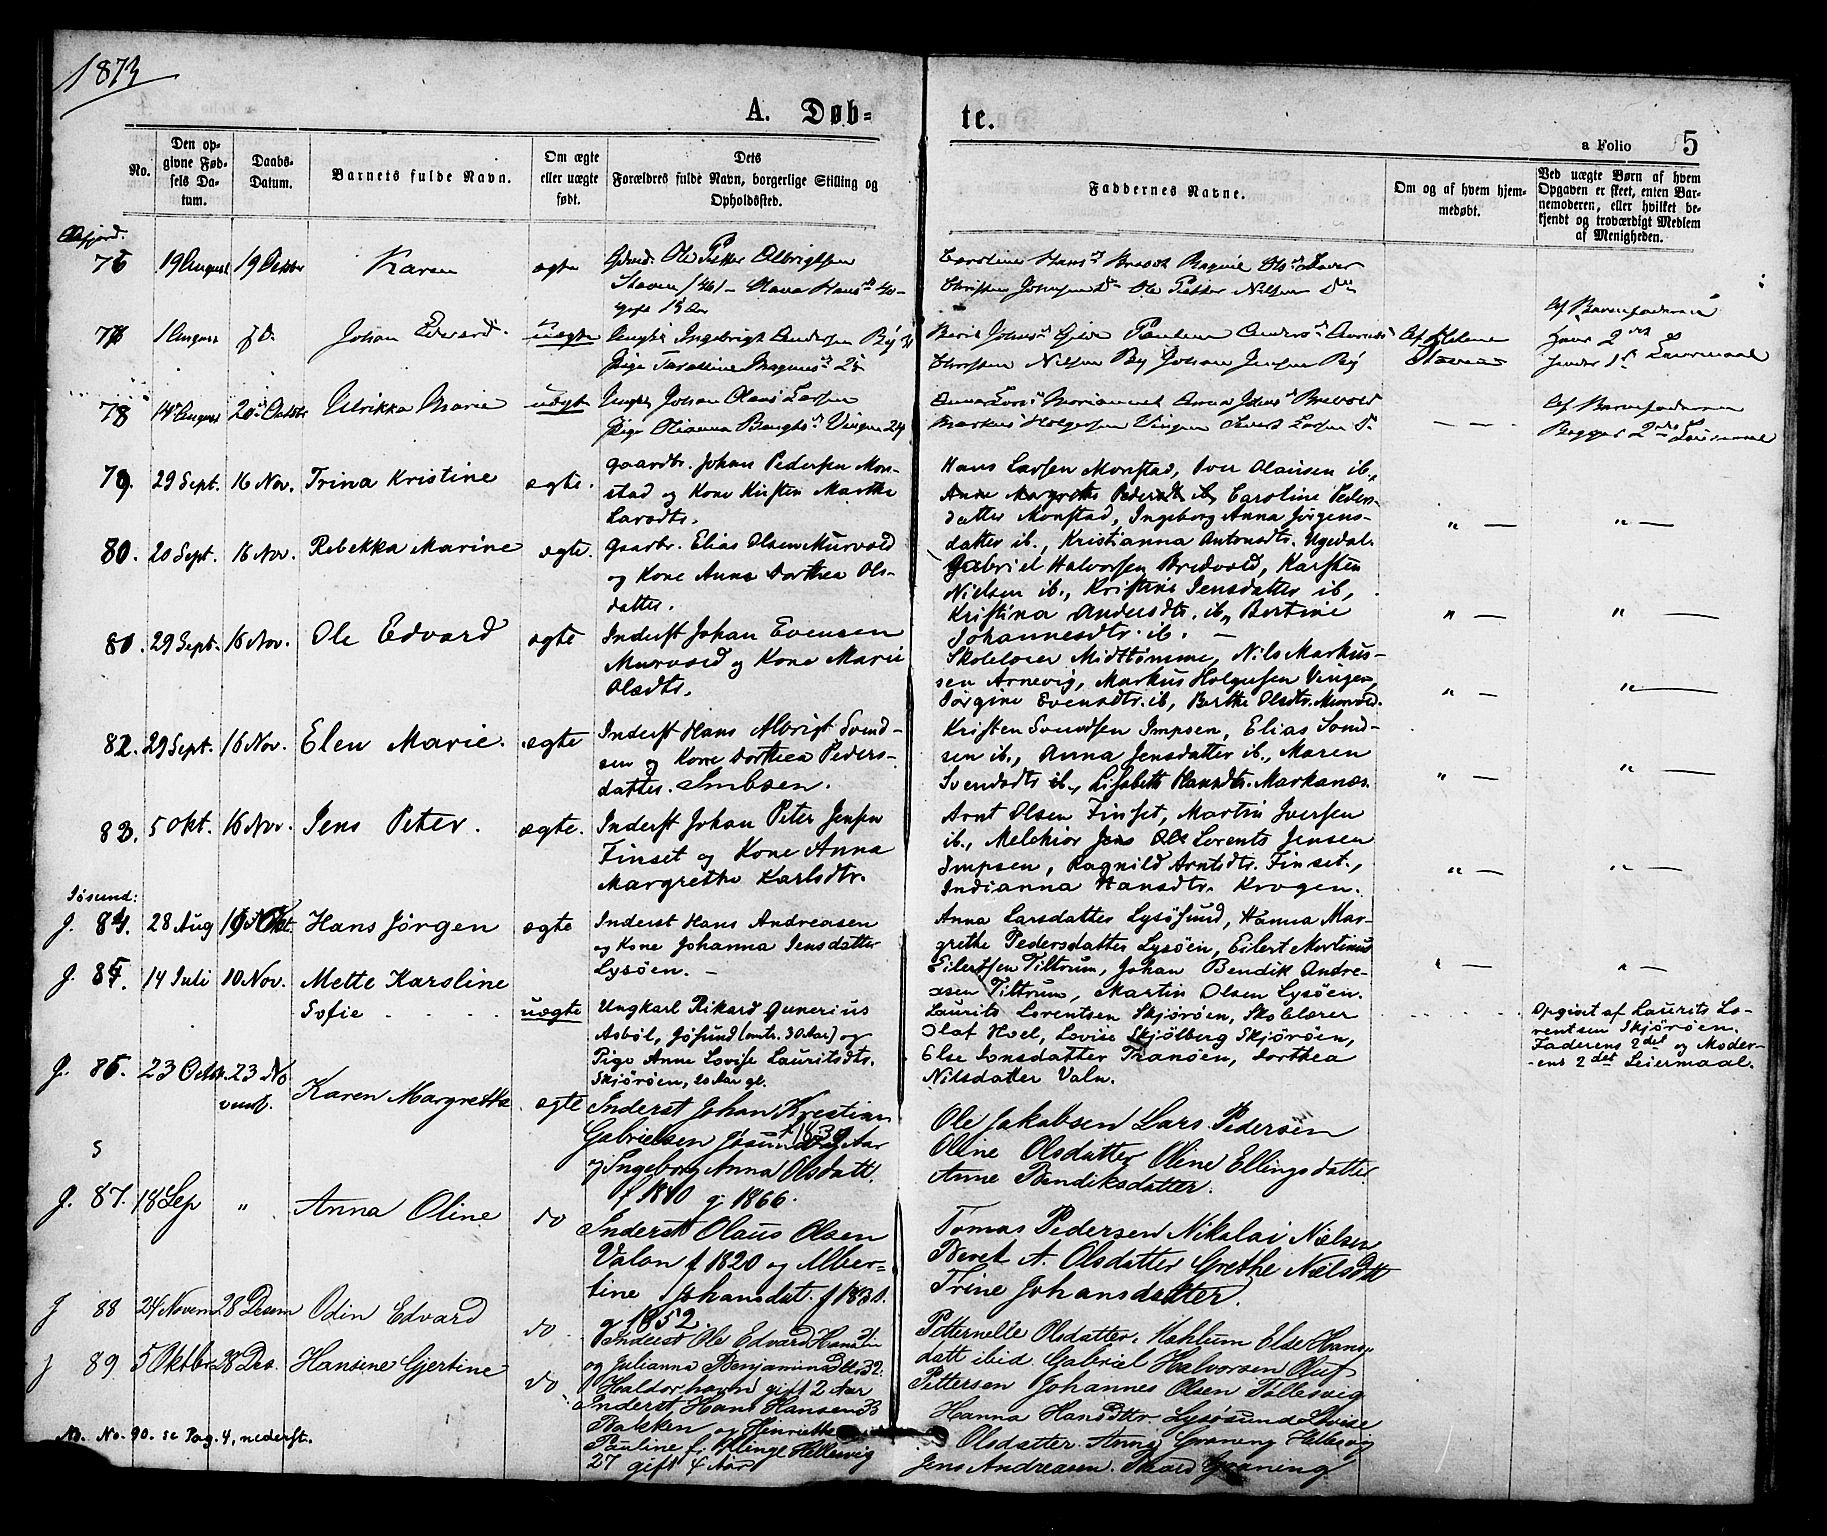 1873
A. Døb-
te.
a Folio 5
No.
Den op-
givne Fød-
sels Da-
tum.
Daabs-
Datum.
Barnets fulde Navn.
Om ægte
eller uægte
født.
Dets
Forældres fulde Navn, borgerlige Stilling og
Opholdssted.
Faddernes Navne.
Om og af hvem hjem-
medøbt.
Ved uægte Børn af hvem
Opgaven er skeet, enten Bar-
nemoderen, eller hvilket be-
kjendt og troværdigt Medlem
af Menigheden.
76 19 August 19 Oktbr Karen ægte
Ole Petter Albrigtsen
77 1 August Johan Edvard. uægte
Ungk. Ingebrigt Andersen By
Christen Nilsen By Johan Jensen By
Af Barnefaderen
78 14 August 20 Octbr Ulrikka Marie uægt
Ungk. Johan Olaus Larsen
Pige Olianna Bengts Vingen 24
Markus Holgersen Vingen
Af Barnefaderen
Begges 2det Leiermaal
79. 29 Sept. 16 Nov. Trina Kristine ægte.
Gaardbr. Johan Pedersen Mon-
stad og Kone Kirsten Marthe
Larsdtr.
Hans Larsen Monstad, Iver Olausen ib.,
Anne Margrethe Pedersdt ib, Caroline Peders-
datter Monstad, Ingeborg Anna Jørgens-
datter ib., Kristianna Antonsdtr. Ugedal.
" —
" —
80. 20 Sept. 16 Nov. Rebekka Marine ægte.
Gaarbr. Elias Olsen Murvold
og Kone Anne Dorthea Ols-
datter.
Gabriel Halvorsen Bredvold, Karsten
Nielsen ib., Kristine Jensdatter ib,
Kristina Andersdtr. ib, Bertine
Johannesdtr. ib. —
" —
" —
81. 29 Sept. 16 Nov. Ole Edvard ægte
Inderst Johan Evensen
Murvold og Kone Marie
Olsdtr.
Skolelærer Midttømme, Nils Markus-
sen Arnevig, Markus Holgersen Vingen,
Jørgine Evensdtr. ib, Berthe Olsdtr. Murvold.
" —
" —
82. 29 Sept. 16 Nov. Elen Marie. ægte
Inderst Hans Albrigt Svend-
sen og Kone Dorthea Peders-
datter. Imbsen.
Kristen Svendsen Impsen, Elias Svend-
sen ib., Anna Jensdatter ib., Maren
Svendsdtr ib., Lisabeth Hansdtr. Markanæs.
" —
" —
83. 5 Okt. 16 Nov. Jens Peter. ægte.
Inderst Johan Peter Jensen
Finset og Kone Anna
Margrethe Karlsdtr.
Arnt Olsen Finset, Martin Iversen
ib., Melchior Jens Ole Lorents Jensen
Impsen, Ragnild Arntsdtr. Finset,
Indianna Hansdtr. Krogen.
" —
" —
Jøsund:
J. 84. 28 Aug Hans Jørgen ægte
Inderst Hans Andreasen
og Kone Johanna Jensdatter
Lysøen. —
Anna Larsdatter Lysøsund, Hanna Mar-
grethe Pedersdatter Lysøen, Eilert Martinus
Eilertsen Tiltrum, Johan Bendik Andre-
asen Tiltrum, Martin Olsen Lysøen.
" —
" —
J. 85. 14 Juli 10 Nov. Mette Karoline
Sofie uægte
Ungkarl Rikard Gunerius
Asbøl, Jøsund (omtr. 30 Aar) og
Pige Anne Lovise Lauritsdtr.
Skjørøen, 20 Aar gl.
Laurits Lorentsen Skjørøen, Skolelærer
Olaf Hoel, Lovise Skjølberg Skjørøen,
Else Jonsdatter Tranøen, Dorthea
Nilsdatter Valn.
Opgivet af Laurits Lo-
rentsen Skjørøen.
Faderens 2det og Moder-
ens 2det Leiermaal.
J. 86. 23 Octbr. 23 No
vemb. Karen Margrethe. ægte
Inderst Johan Kristian
Gabrielsen Jøsund Aar
og Ingeborg Anna Olsdatt.
f 1840 g. 1866.
Ole Jakobsen Lars Pedersen
Oline Olsdatter Oline Ellingsdatter
Anne Bendiksdatter.
J. 87. 18 Sep " Anna Oline do
Inderst Olaus Olsen
Valen f 1820 og Alber-
tine Johansdat. f 1830.
g 1852.
Tomas Pedersen Nikolai Nielsen
Beret A. Olsdatter Grethe Nielsdtt
Trine Johansdatter.
J 88 24 Novem 28 Desem Odin Edvard do.
Inderst Ole Edvard Hansen
og Julianna Benjaminsdtr 32.
Haldorhavn gift 2 Aar
Petternelle Olsdatter. Kahlum Else Hans-
datt ibid. Gabriel Halvorsen Oluf
Pettersen Johannes Olsen Tellesvig
J 89. 5 Oktbr 28 Des. Hansine Gjertine do.
Inderst Hans Hansen 33
Bakken og Henriette
Pauline f. Klinge Hellesvig
27 gift 4 Aar
Hanna Hansdttr. Lysøsund Lovise
Olsdatter. Anne Graning Hellesvig
Jens Andreasen. Graning
No. No. 90. se Pag. 4, nederst.